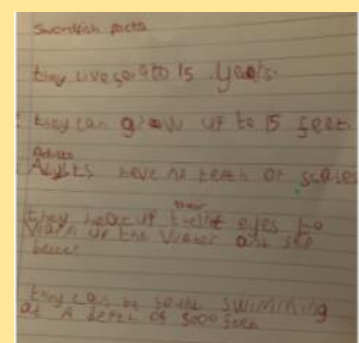 Swordfish facts
they live 9 to 15 years.
they can grow up to 15 feet.
Adults
Adults have no teeth or scales
their
they heat up their eyes to
warm up the water and see
better
they can be swimming
at A depth of 5000 feet